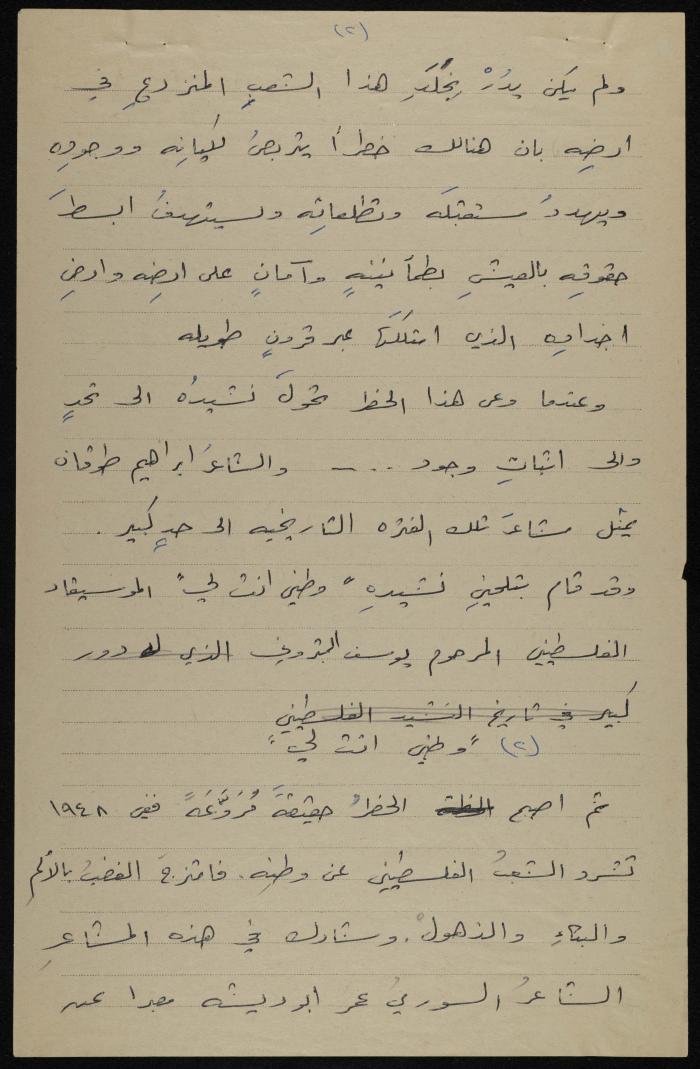 (٢)
ولم يكن يدُرْ بِخَلَدِ هذا الشعبِ المنزرعِ في
ارضِه بان هنالك خطراً يتربصُ لكيانِه ووجودِه
ويهددُ مستقبلَه وتطلعاتِه ويستهدفُ ابسطَ
حقوقِه بالعيشِ بطمأنينةٍ وآمانٍ على ارضِه وارضِ
اجدادِه الذي امتلكَها عبر قرونٍ طويله
وعندما وعى هذا الخطر تحولَ نشيدُه الى تحدٍ
والى اثباتِ وجود .... والشاعرُ ابراهيم طوقان
يمثل مشاعرَ تلك الفتره التاريخيه الى حدٍ كبير .
وقد قام بتلحينِ نشيدِهِ " وطني انت لي " الموسيقار
الفلسطيني المرحوم يوسف البتروني الذي له دور
كبير في تاريخ النشيد الفلسطيني
(٢) "وطني انت لي"
ثم اصبح الخطرُ حقيقةً مُرَوِّعَةً ففي ١٩٤٨
تشرد الشعبُ الفلسطيني عن وطنِه . فامتزجَ الغضبُ بالألمِ
والبكاءِ والذهولْ . وشارك في هذه المشاعرِ
الشاعرُ السوريُ عمر ابو ريشه معبرا عن